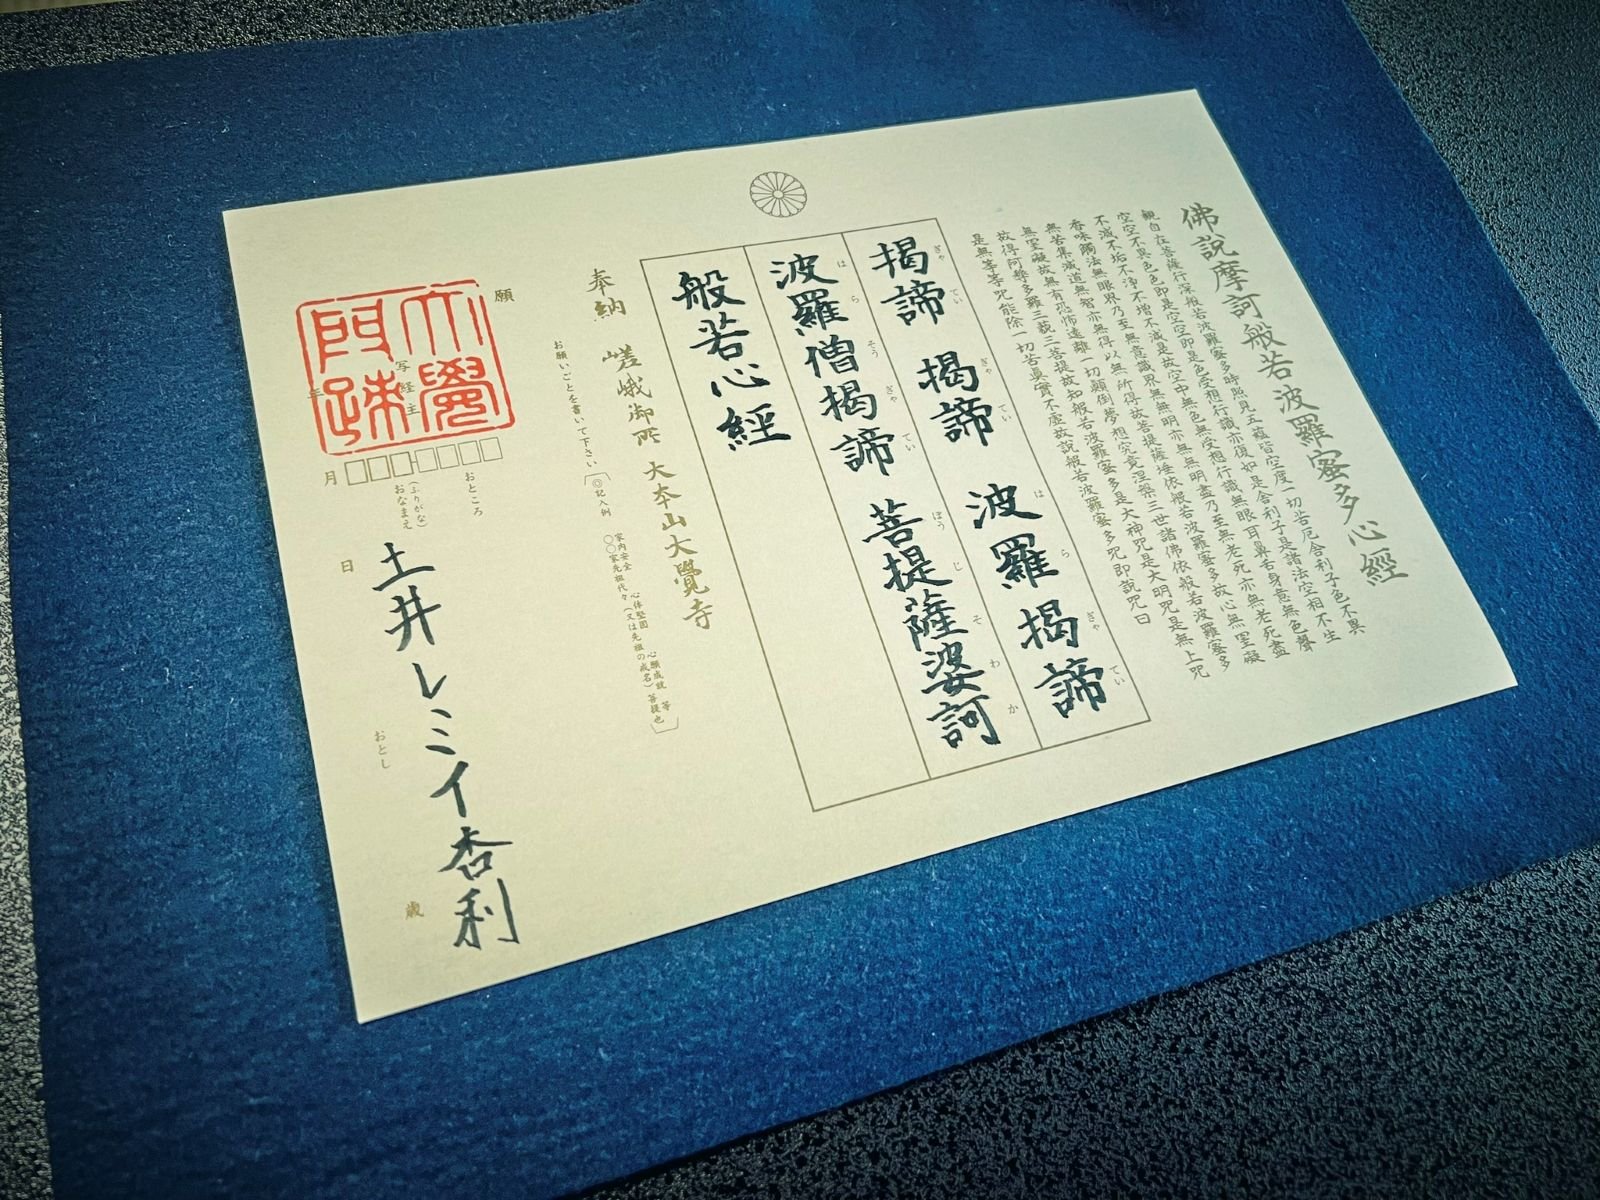 佛説摩訶般若波羅蜜多心經
觀自在菩薩行深般若波羅蜜多時照見五蘊皆空度一切苦厄舍利子色不異
空空不異色色即是空空即是色受想行識亦復如是舍利子是諸法空相不生
不滅不垢不淨不增不減是故空中無色無受想行識無眼耳鼻舌身意無色聲
香味觸法無眼界乃至無意識界無無明亦無無明盡乃至無老死亦無老死盡
無苦集滅道無智亦無得以無所得故菩提薩埵依般若波羅蜜多故心無罣礙
無罣礙故無有恐怖遠離一切顛倒夢想究竟涅槃三世諸佛依般若波羅蜜多
故得阿耨多羅三藐三菩提故知般若波羅蜜多是大神呪是大明呪是無上呪
是無等等呪能除一切苦真實不虛故説般若波羅蜜多呪即説呪曰
ぎゃ てい ぎゃ てい は ら ぎゃ てい
揭諦 揭諦 波羅揭諦
は ら そう ぎゃ てい ぼう じ そ わ か
波羅僧揭諦 菩提薩婆訶
般若心經
奉納 嵯峨御所 大本山大覺寺
お願いごとを書いて下さい
◎記入例
家内安全 心体堅固 心願成就 等
〇〇家先祖代々(又は先祖の戒名)菩提也
願
大覺門跡
写経主
おところ
(ふりがな)
おなまえ
土井レミイ杏利
おとし
歳
年
月
日